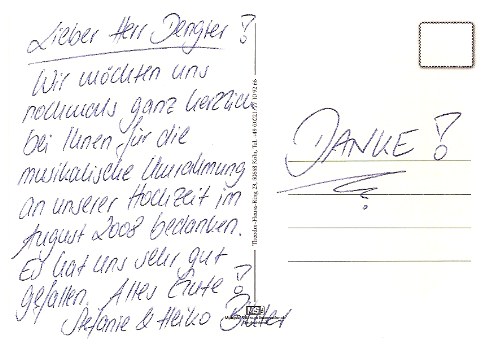 Lieber Herr Dengler!
Wir möchten uns
nochmals ganz herzlich
bei Ihnen für die
musikalische Umrahmung
an unserer Hochzeit im
August 2008 bedanken.
Es hat uns sehr gut
gefallen. Alles Gute!
Stefanie & Heiko
DANKE!